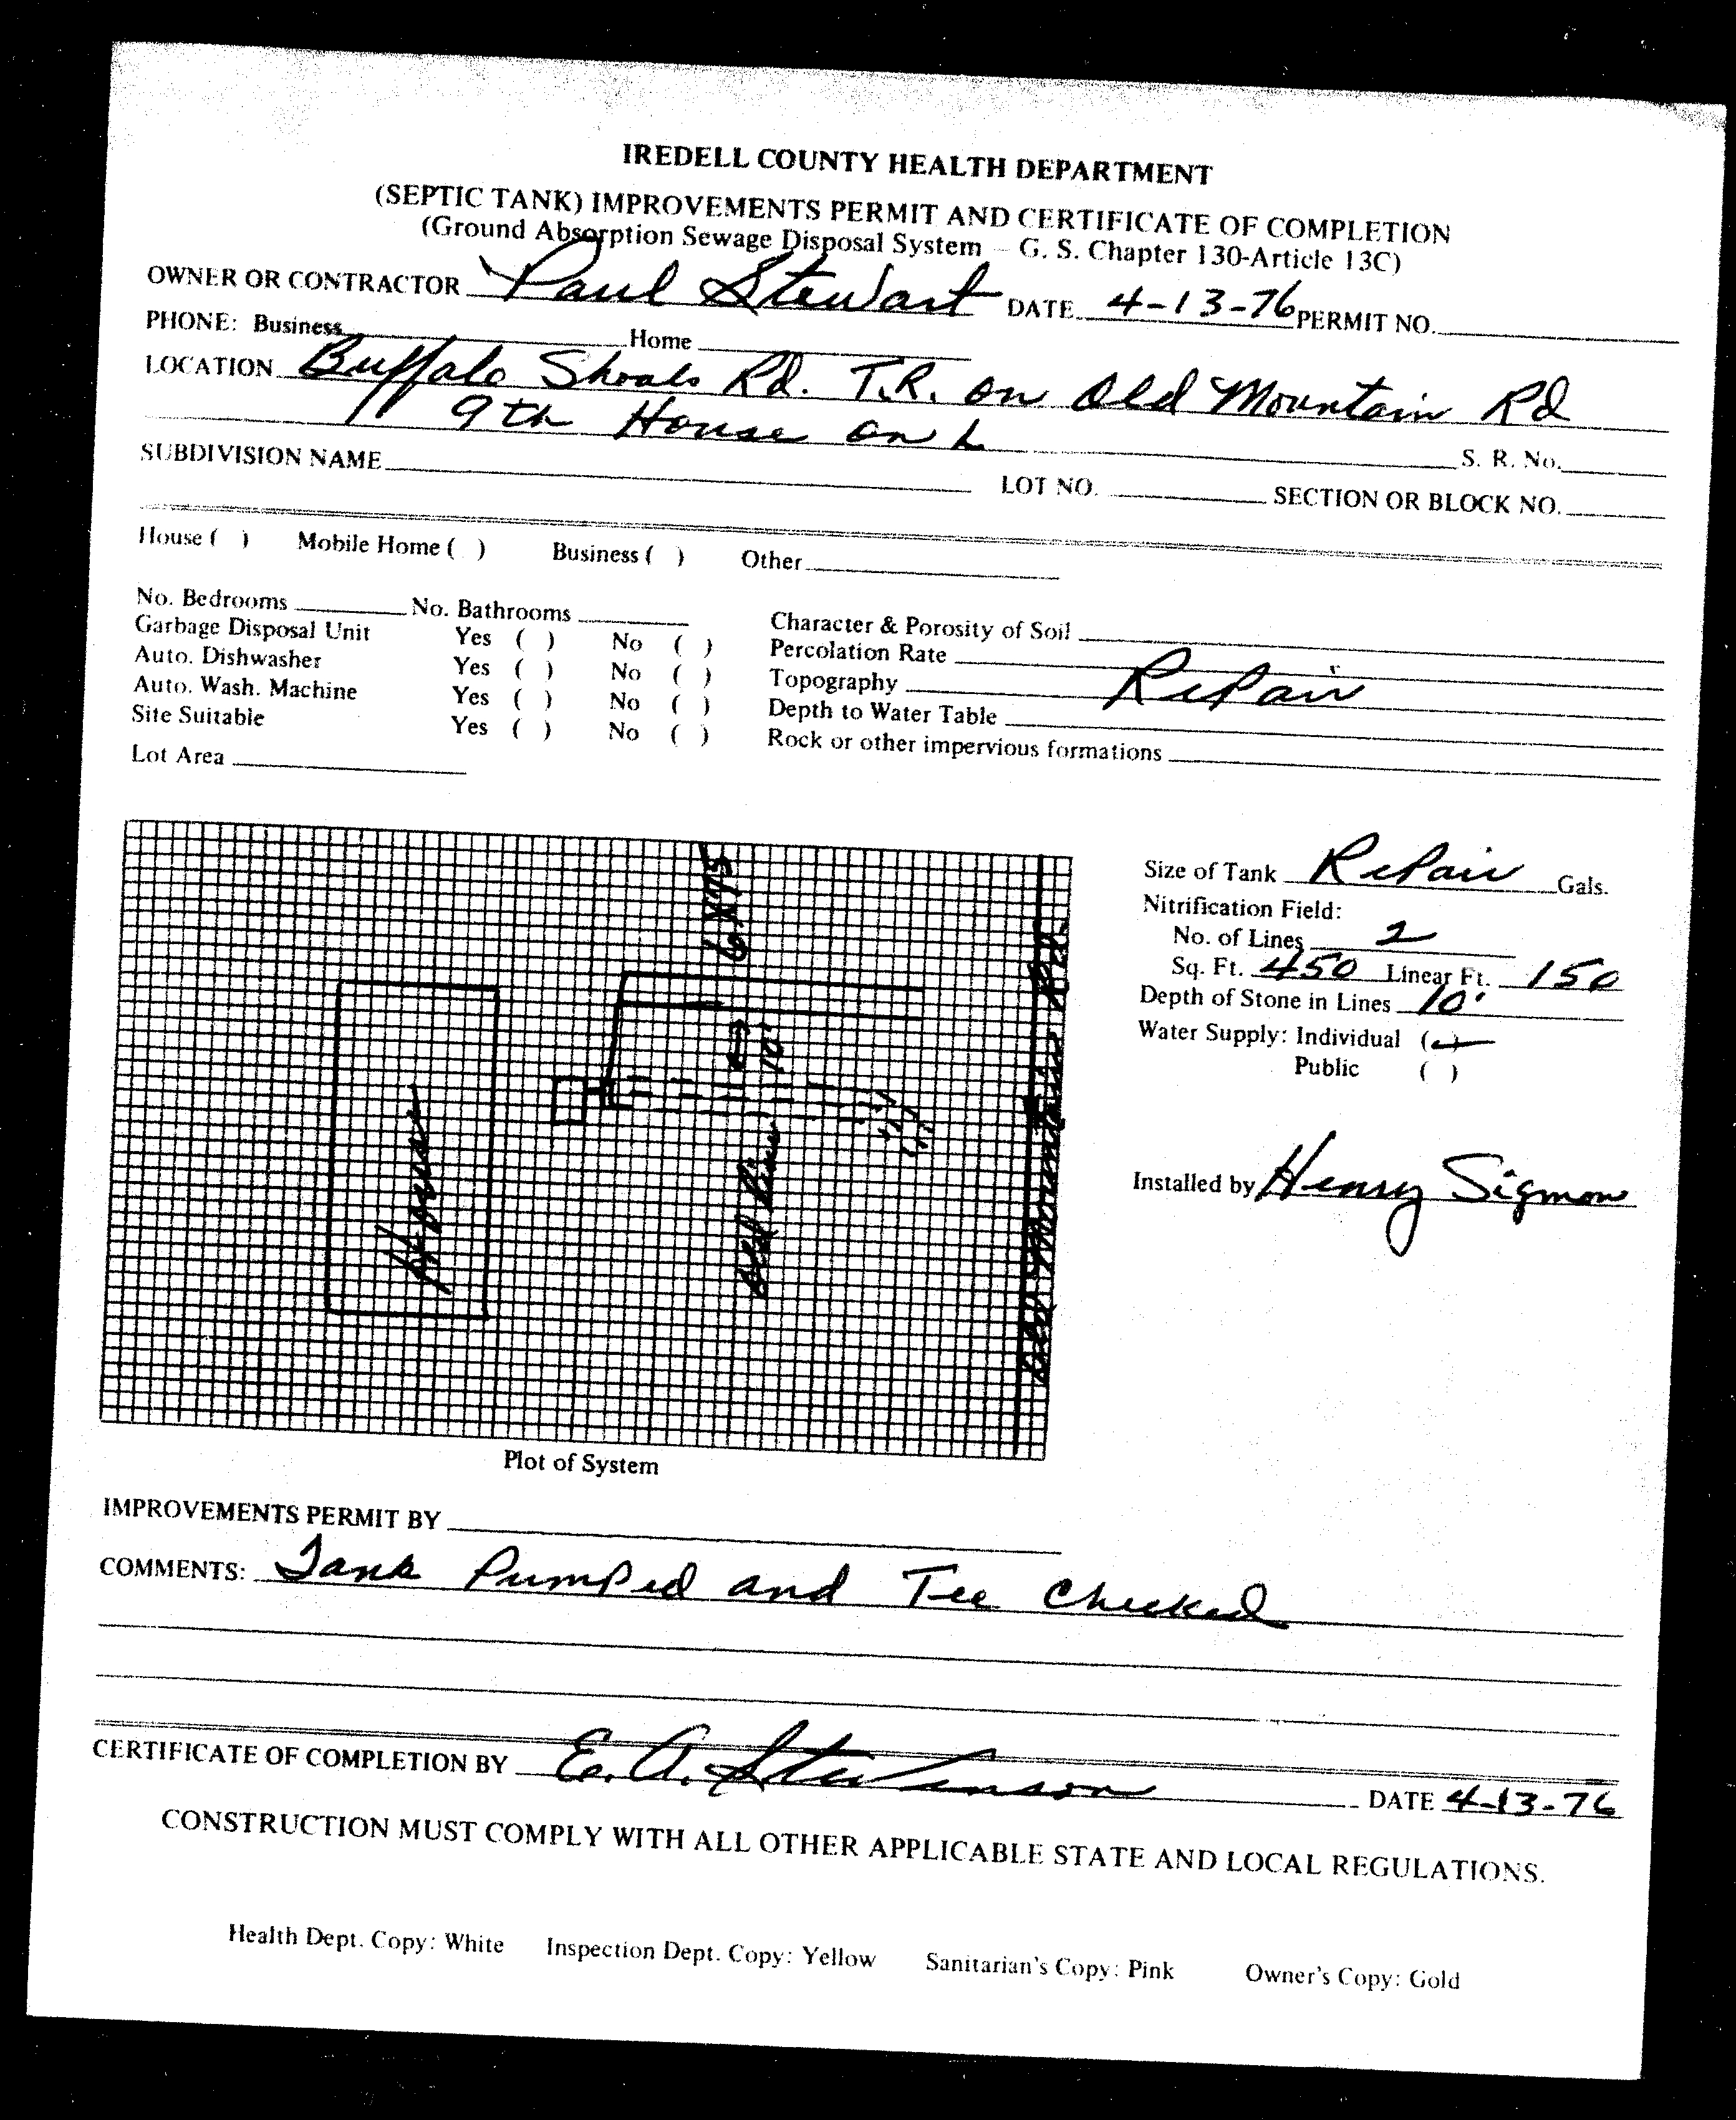 IREDELL COUNTY HEALTH DEPARTMENT
(SEPTIC TANK) IMPROVEMENTS PERMIT AND CERTIFICATE OF COMPLETION
(Ground Absorption Sewage Disposal System – G. S. Chapter 130-Article 13C)
OWNER OR CONTRACTOR Paul Stewart DATE 4-13-76 PERMIT NO.
PHONE: Business Home
LOCATION Buffalo Shoals Rd. T.R. on Old Mountain Rd
9th House on L S. R. No.
SUBDIVISION NAME LOT NO. SECTION OR BLOCK NO.
House ( ) Mobile Home ( ) Business ( ) Other
No. Bedrooms No. Bathrooms
Garbage Disposal Unit Yes ( ) No ( )
Auto. Dishwasher Yes ( ) No ( )
Auto. Wash. Machine Yes ( ) No ( )
Site Suitable Yes ( ) No ( )
Lot Area
Character & Porosity of Soil
Percolation Rate
Topography Repair
Depth to Water Table
Rock or other impervious formations
House
10'
Old Lines
Old Mountain Rd.
Plot of System
Size of Tank Repair Gals.
Nitrification Field:
No. of Lines 2
Sq. Ft. 450 Linear Ft. 150
Depth of Stone in Lines 10"
Water Supply: Individual (✓)
Public ( )
Installed by Henry Sigmon
IMPROVEMENTS PERMIT BY
COMMENTS: Tank Pumped and Tee Checked
CERTIFICATE OF COMPLETION BY E. A. Stevenson DATE 4-13-76
CONSTRUCTION MUST COMPLY WITH ALL OTHER APPLICABLE STATE AND LOCAL REGULATIONS.
Health Dept. Copy: White Inspection Dept. Copy: Yellow Sanitarian's Copy: Pink Owner's Copy: Gold